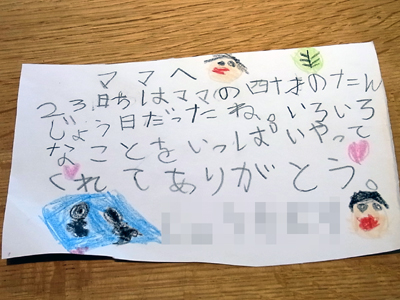 ママへ
23日はママの四十才のたん
じょう日だったね。いろいろ
なことをいっぱいやって
くれてありがとう。